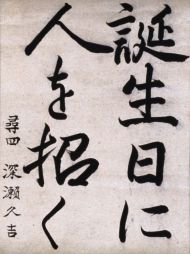 誕生日に
人を招く
尋四 深瀬久吉